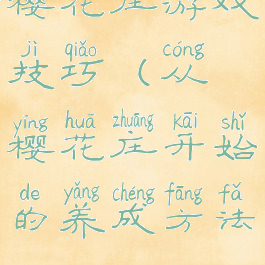 樱花庄游戏
jì qiǎo cóng
技巧(从
yīng huā zhuāng kāi shǐ
樱花庄开始
de yǎng chéng fāng fǎ
的养成方法